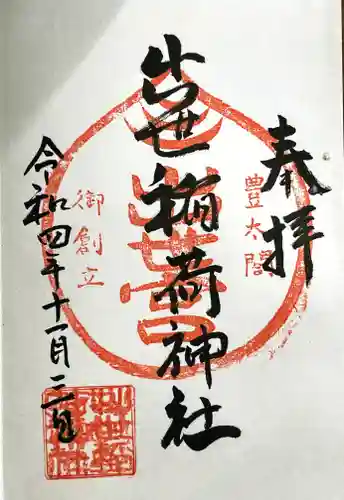 奉拝
豊太閤
出世稲荷神社
御創立
令和四年十一月三日